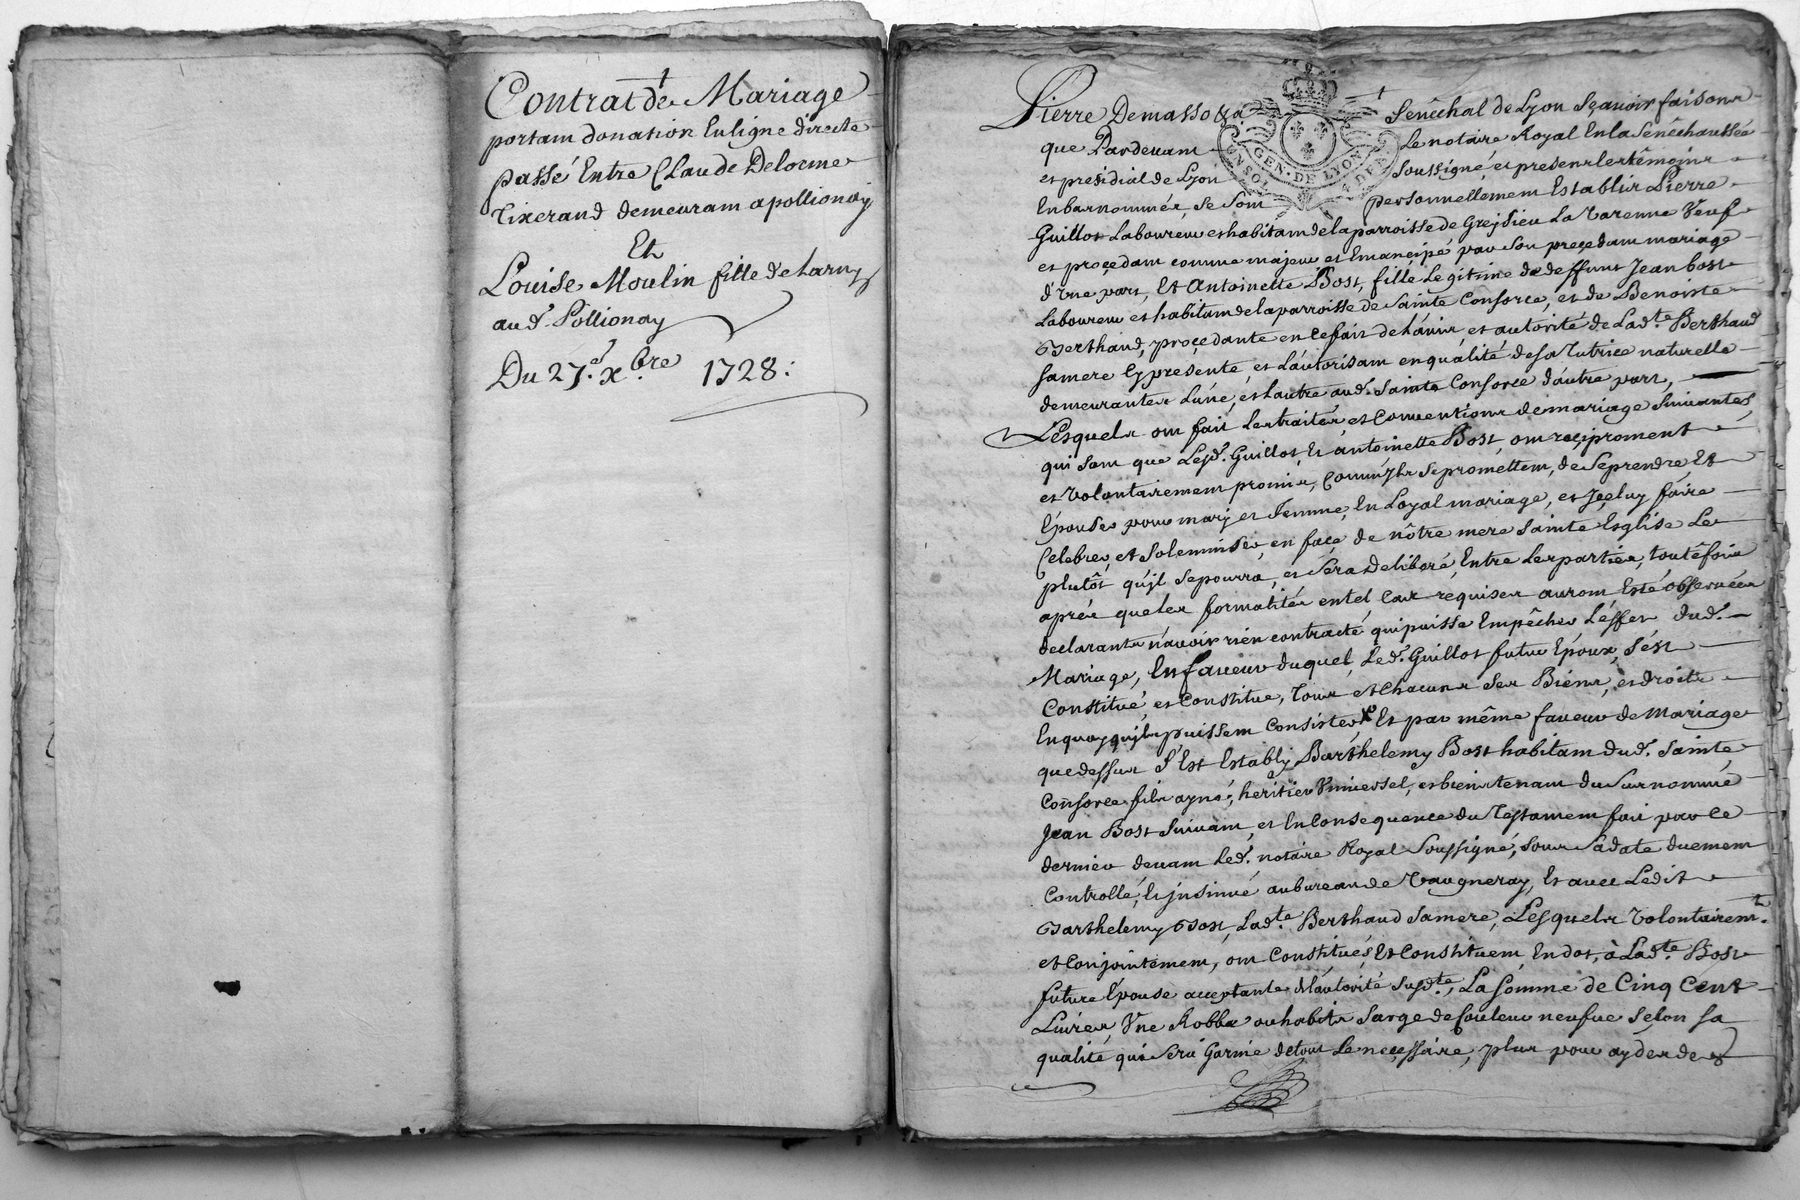 Contrat de Mariage
portam donation En ligne directe
passé Entre Claude Delorme
Tixerand demeuram a pollionay
Et
Louise Moulin fille de Larny
aud. Pollionay
Du 27.e xbre 1728:
Pierre Demasso &a Senêchal de Lyon Sçavoir faisons
que Pardevam Le notaire Royal En la Senêchaussée
et presidial de Lyon Soussigné et presens les têmoins
En bas nommés, se Som personnellemem Establis Pierre
GEN. DE LYON
Guillot Laboureur et habitam de la parroisse de Grejsieu La Varenne Veuf
et proçedam comme majeur et Emancipé par Son preçedam mariage
d'Vne part, Et Antoinette Bost, fille Legitime de deffunt Jean bost
Laboureur et habitam de la parroisse de Sainte Consorce, et de Benoiste
Berthaud, proçedante en ce fait de L'avis et autorité de Lad.te Berthaud
sa mere Cy presente, et L'autorisam en qualité de sa Tutrice naturelle
demeurantes L'une, et L'autre aud. Sainte Consorce d'autre part,
Lesquels om fait Les traités, et Conventions de mariage Suivantes,
qui som que Led. Guillot Et antoinette Bost, om reciproment
et Volontairemem promis, Comm'Ils se promettem, de Se prendre Et
Epouser pour mary et femme, En Loyal mariage, et Jçeluy faire
Celebrer, et Solemniser, en façe de nôtre mere Sainte Esglise Le
plutôt qu'jl se pourra, et Séra deliberé, Entre Les parties, toutêfois
aprés que les formalités en tel Cas requises aurom Esté observées
declarants n'avoir rien contracté qui puisse Empêcher L'effet dud.
Mariage, En faveur duquel, Led. Guillot futur Epoux, S'ést
Constitué, et Constitue, Tous et Chacuns Ses Biéns, et droits
En quoy qu'jls puissem Consister Et par même faveur de Mariage
que dessus S'Est Establj Barthelemy Bost habitam dud. Sainte
Consorce fils ayné, heritier Vniversel, et bien tenam du Surnommé
Jean Bost Suivam, et En Consequence du Testamem fait par Ce
dernier devam Led. notaire Royal Soussigné, sous Sa date duemem
Controllé, Et jnsinué au bureau de Vaugneray, Et avec Ledit
Barthelemy Bost, Lad.te Berthaud Sa mere, Lesquels Volontairem.t
et Conjointemem, om Constitués, Et Constituem, En dot, à Lad.te Bost
future Epouse acceptante de L'autorité Susd.te, La Somme de Cinq Cent
Livres, Vne Robbe ou habits Sarge de Couleur neufue Selon Sa
qualité, qui Sera Garnie de tout Le neçessaire, plus pour ayder de